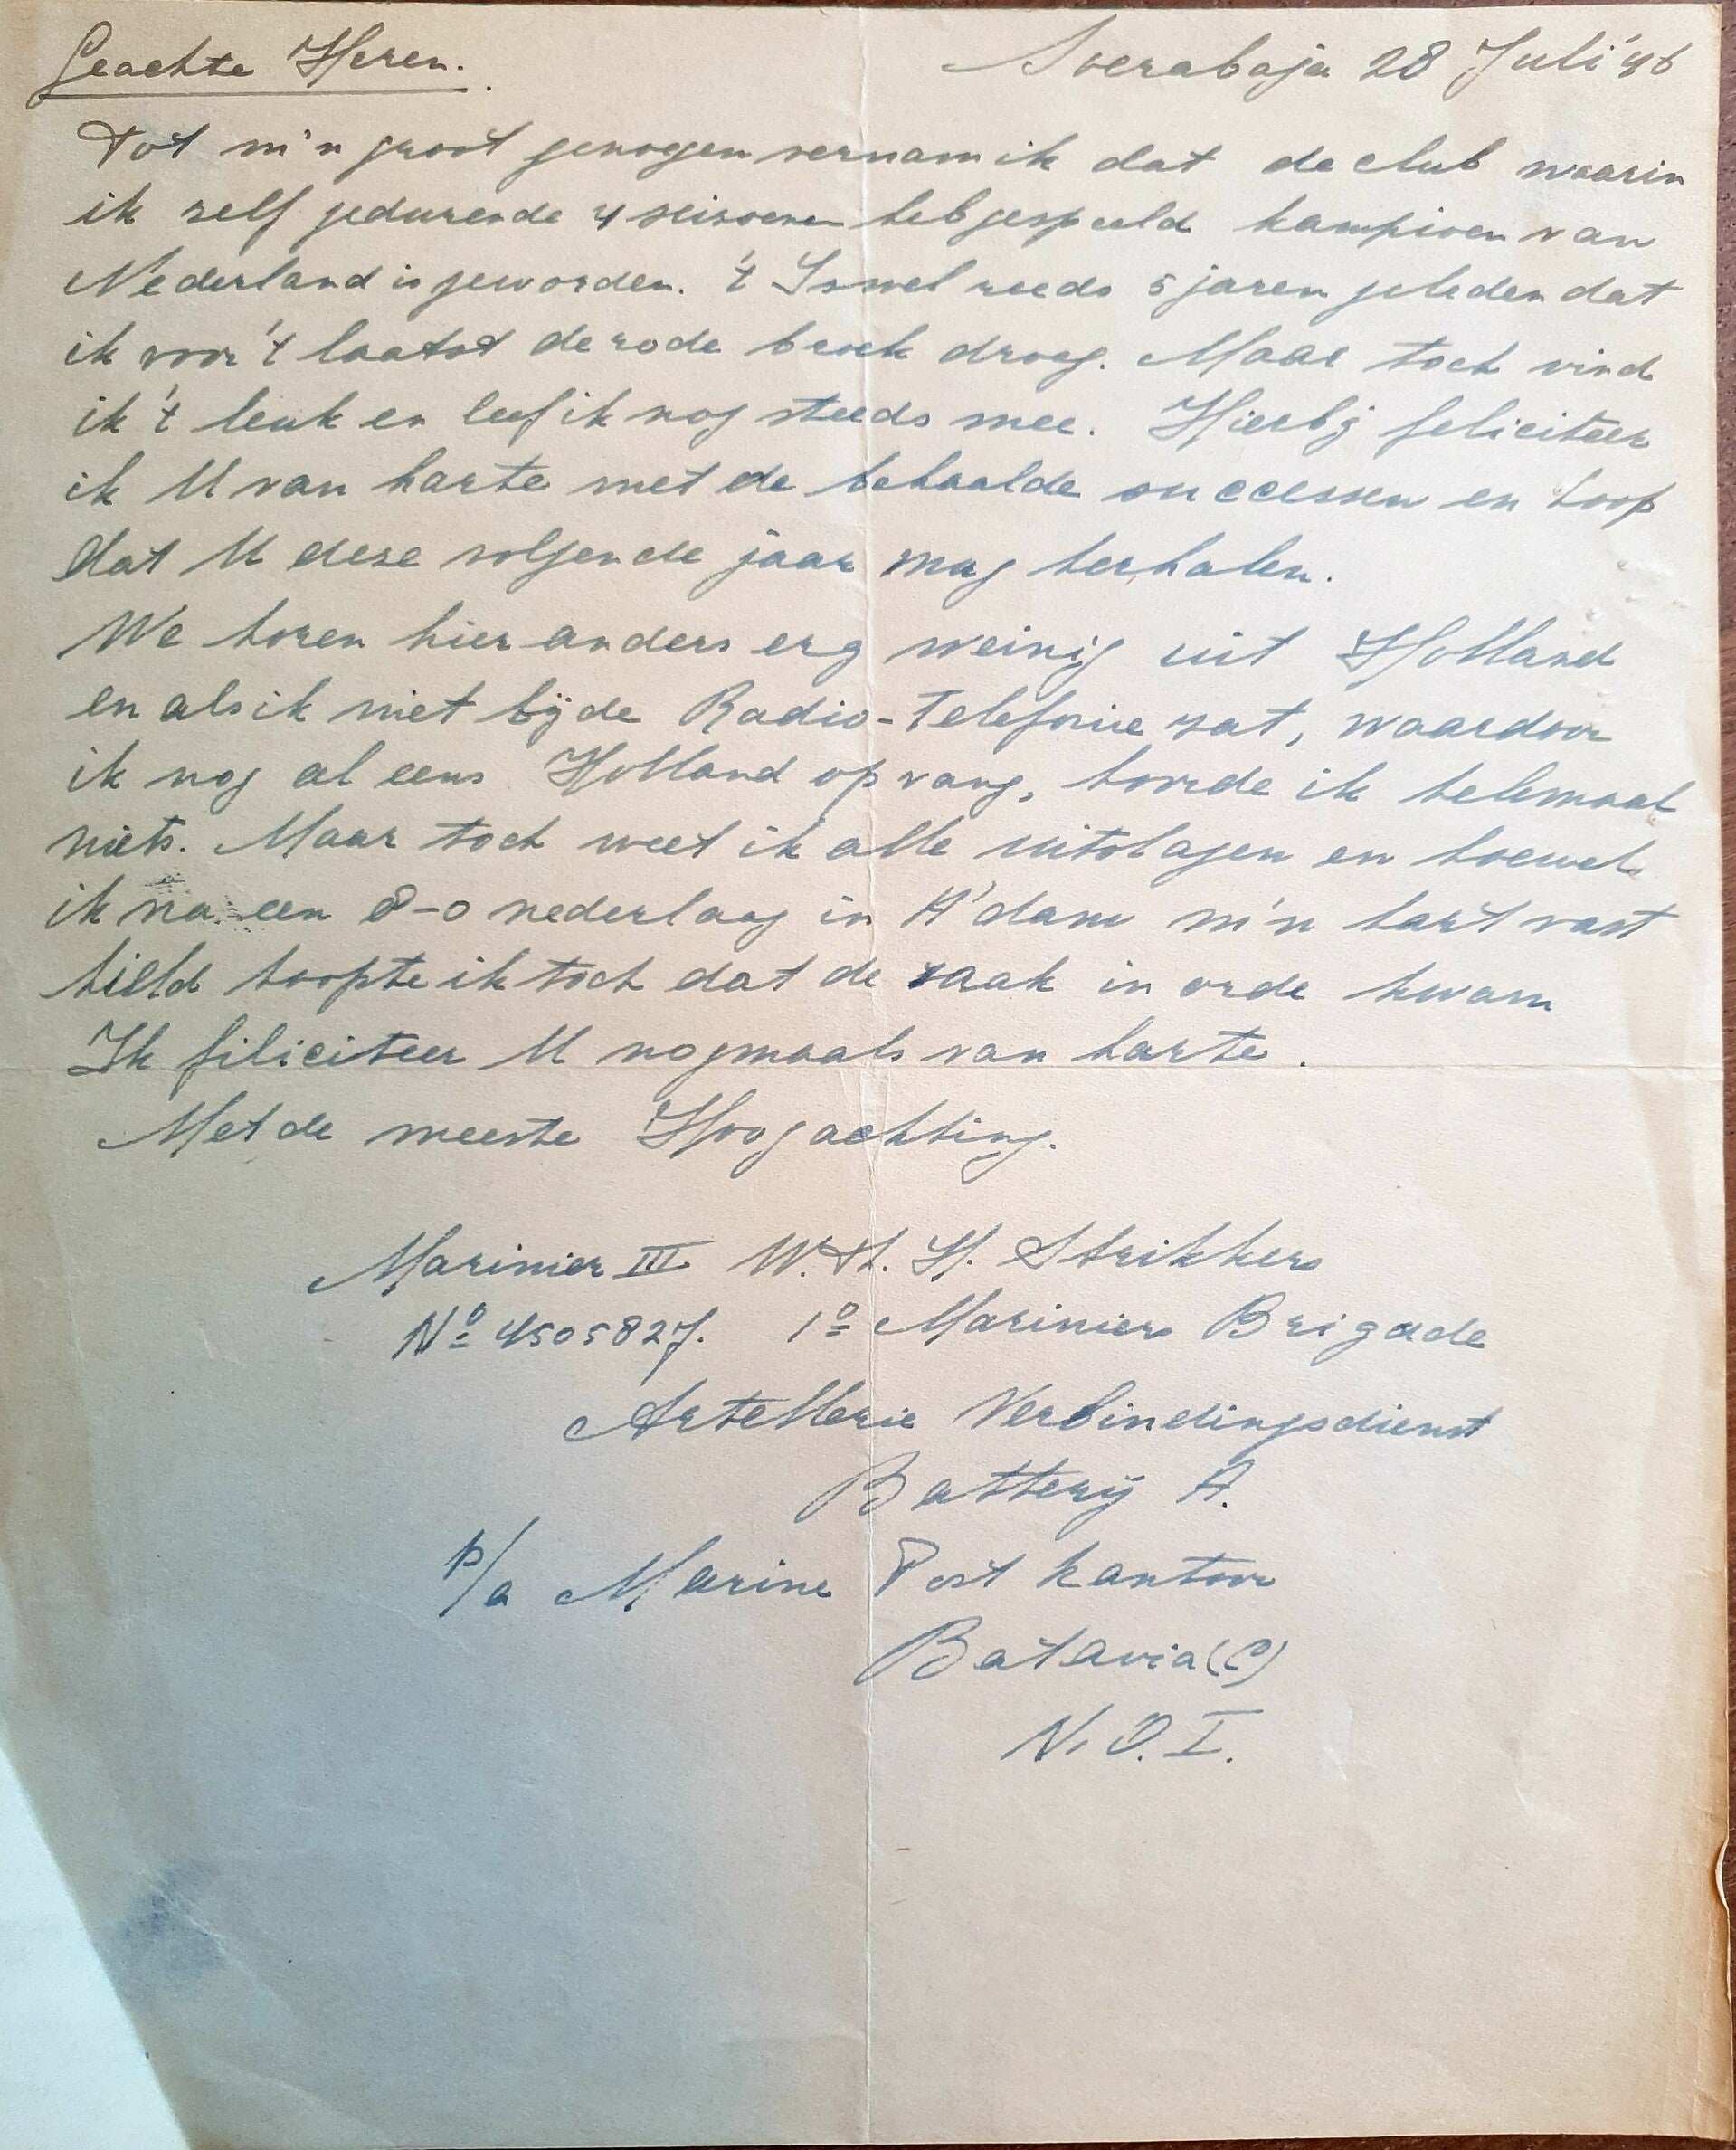 Geachte Heren.
Soerabaja 28 Juli '46
Tot m'n groot genoegen vernam ik dat de club waarin
ik zelf gedurende 4 seizoenen heb gespeeld kampioen van
Nederland is geworden. 't Is wel reeds 5 jaren geleden dat
ik voor 't laatst de rode broek droeg. Maar toch vind
ik 't leuk en leef ik nog steeds mee. Hierbij feliciteer
ik U van harte met de behaalde successen en hoop
dat U deze volgende jaar mag herhalen.
We horen hier anders erg weinig uit Holland
en als ik niet bij de Radio-Telefonie zat, waardoor
ik nog al eens Holland opvang, hoorde ik helemaal
niets. Maar toch weet ik alle uitslagen en hoewel
ik na een 8-0 nederlaag in A'dam m'n hart vast
hield hoopte ik toch dat de zaak in orde kwam
Ik filiciteer U nogmaals van harte.
Met de meeste Hoogachting.
Marinier III W. H. H. Strikkers
No 4505827. 1o Mariniers Brigade
Artellerie Verbindingsdienst
Batterij A.
p/a Marine Post kantoor
Batavia (C)
N. O. I.